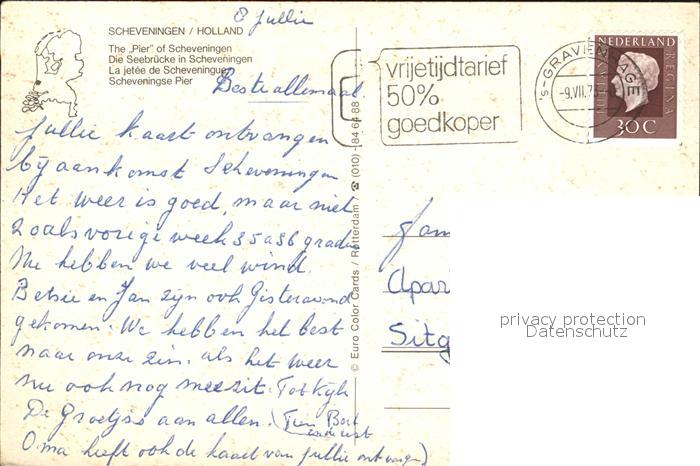 8 jullie
SCHEVENINGEN / HOLLAND
The „Pier" of Scheveningen
Die Seebrücke in Scheveningen
La jetée de Scheveningue
Scheveningse Pier
Beste allemaal
jullie kaart ontvangen
bij aankomst Scheveningen
Het weer is goed, maar niet
zoals vorige week 35 a 36 graden
Nu hebben we veel wind.
Betsie en Jan zijn ook Gisteravond
gekomen. We hebben het best
naar onze zin. als het weer
nu ook nog meezit. Tot Kijk
De Groetjes aan allen.
Oma heeft ook de kaart van jullie ontvangen)
© Euro Color Cards / Rotterdam / ☎ (010) - 84 64 88
vrijetijdtarief
50%
goedkoper
's-GRAVENHAGE
-9.VII.7
NEDERLAND
JULIANA REGINA
30 C
Fam
Apar
Sitg
privacy protection
Datenschutz